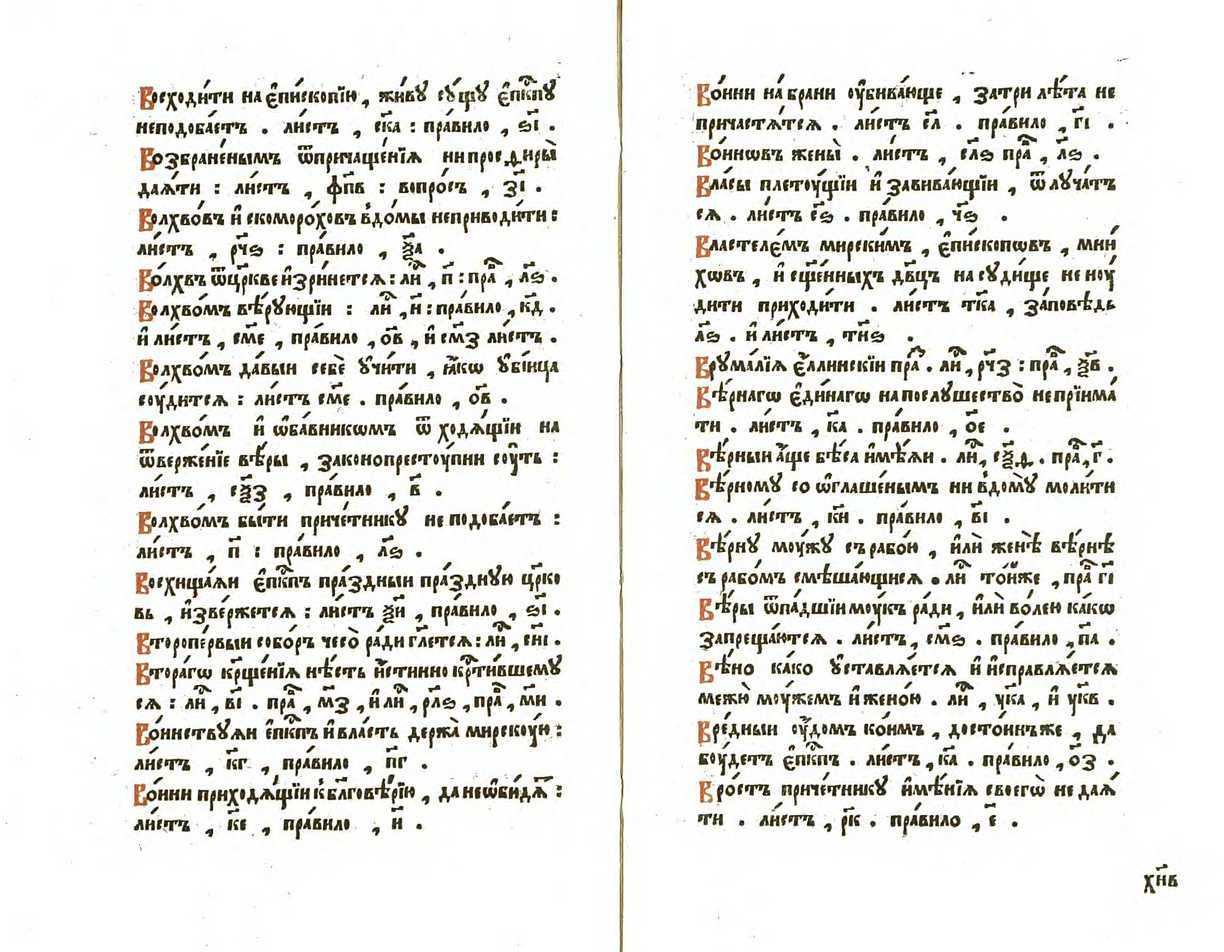 Восходи́ти на є҆пископі́ю , жи́вꙋ сꙋ́щꙋ є҆пⷭ҇кпꙋ
неподоба́етъ . ли́стъ , ска : пра́вило , ѕ҃і .
Возбране́нымъ ѿпричаще́нїѧ ни просфиры̀
даѧ́ти : ли́стъ , фп҃в : вопро́съ , з҃і .
Волхво́въ и҆ скоморо́ховъ вдо́мы неприводи́ти :
ли́стъ , рч҃ѕ : пра́вило , ѯ҃а .
Во́лхвъ ѿцр҃кве и҆зри́нетсѧ : лиⷭ҇ , п҃ : праⷡ҇ , л҃ѕ .
Волхво́мъ вѣ́рꙋющїи : лиⷭ҇ , н҃ : пра́вило , к҃д .
и҆ ли́стъ , сме , пра́вило , о҃в , и҆ см҃з ли́стъ .
Волхво́мъ да́выи себѐ ᲂу҆чи́ти , ꙗ҆́кѡ ᲂу҆бі́ица
соу́дитсѧ : ли́стъ сме . пра́вило , о҃в .
Волхво́мъ и҆ ѡ҆ба́вникѡмъ ѿ ходѧ́щїи на
ѿверже́нїе вѣ́ры , законопрестоу́пни соу́ть :
ли́стъ , сѯ҃з , пра́вило , в҃ .
Волхво́мъ бы́ти приче́тникꙋ не подоба́етъ :
ли́стъ , п҃ : пра́вило , л҃ѕ .
Восхища́ѧи є҆пⷭ҇кпъ пра́здныи пра́зднꙋю цр҃ко
вь , и҆зве́ржетсѧ : ли́стъ ѯ҃и , пра́вило , ѕ҃і .
Второпе́рвыи собо́ръ чесо̀ ра́ди гл҃етсѧ : лиⷭ҇ , сн҃і .
Втора́гѡ кр҃ще́нїѧ нѣ́сть и҆́стинно крⷭ҇ти́вшемꙋ
сѧ : лиⷭ҇ , в҃і . праⷡ҇ , м҃з , и҆ лиⷭ҇ , рл҃ѕ , праⷡ҇ , ми .
Во́инствꙋѧи є҆пⷭ҇кпъ и҆ вла́сть держа̀ мирскоу́ю :
ли́стъ , к҃г , пра́вило , п҃г .
Во́ини приходѧ́щїи к бл҃гові́рїю , да неѡ҆би́дѧⷮ :
ли́стъ , к҃е , пра́вило , и҃ .
Во́ини на́ брани ᲂу҆бива́юще , затри лѣ́та не
причастѧ́тсѧ . ли́стъ с҃л . пра́вило , г҃і .
Во́инѡвъ жены̀ . ли́стъ , сл҃ѕ праⷡ҇ , л҃ѕ .
Вла́сы плетоу́щїи и҆ завива́ющїи , ѿлꙋча́тъ
сѧ . ли́стъ с҃ѕ . пра́вило , ч҃ѕ .
Властеле́мъ мирски́мъ , є҆пи́скопѡвъ , мни́
хѡвъ , и҆ сщ҃е́нныхъ дв҃цъ на сꙋди́ще не ноу́
дити приходи́ти . ли́стъ тк҃а , за́повѣдь
л҃ѕ . и҆ ли́стъ , тн҃ѕ .
Врꙋма́лїѧ є҆́ллинскїи праⷡ҇ . лиⷭ҇ , рч҃з : праⷡ҇ , ѯ҃в .
Вѣ́рнагѡ є҆ди́нагѡ на послꙋ́шество̀ не прїима́
ти . ли́стъ , к҃а . пра́вило , о҃е .
Вѣ́рныи а҆́ще бѣ́са и҆мѣ́ѧи . лиⷭ҇ , сѯ҃д . праⷡ҇ , г҃ .
Вѣ́рномꙋ со ѡ҆глаше́нымъ ни в до́мꙋ̀ моли́ти
сѧ . ли́стъ , к҃и . пра́вило , в҃і .
Вѣ́рнꙋ моу́жꙋ съ рабо́ю , и҆лѝ женѣ̀ вѣ́рнѣ
съ рабо́мъ смѣша́ющисѧ . лиⷭ҇ то́йже , праⷡ҇ г҃і
Вѣ́ры ѿпа́дшїи моу́къ ра́ди , и҆лѝ во́лею ка́кѡ
запреща́ютсѧ . ли́стъ , см҃ѕ . пра́вило , п҃а .
Вѣ́но ка́ко ᲂу҆ставлѧ́етсѧ и҆ и҆справлѧ́етсѧ
межю̀ моу́жемъ и҆ жено́ю . лиⷭ҇ , ук҃а , и҆ ук҃в .
Вре́дныи оу҆́домъ ко́имъ , досто́инъ же , да
боу́детъ є҆пⷭ҇кпъ . ли́стъ , к҃а . пра́вило , о҃з .
Вро́стъ приче́тникꙋ и҆мѣ́нїѧ своегѡ̀ не даѧ́
ти . ли́стъ , р҃к . пра́вило , є҃ .
хн҃в